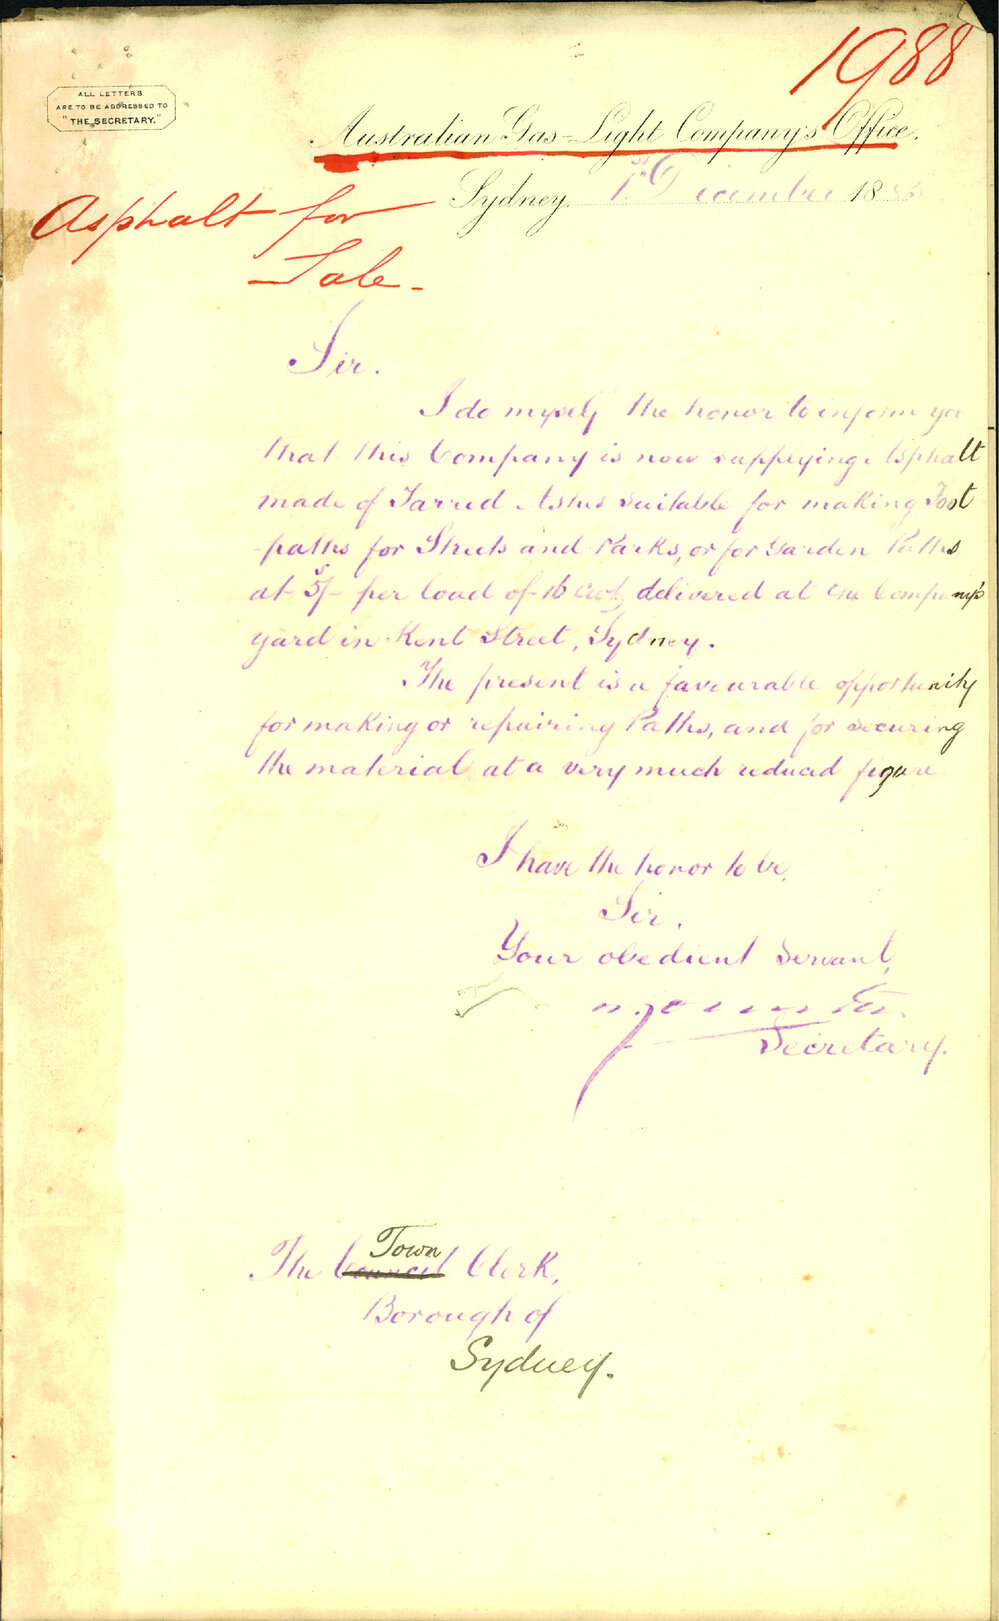 1988
ALL LETTERS
ARE TO BE ADDRESSED TO
"THE SECRETARY."
Australian Gas-Light Company's Office.
Sydney. 1st December 18
Asphalt for
Sale-
Sir.
I do myself the honor to inform you
that this Company is now supplying Asphalt
made of Tarred Ashes suitable for making Foot
-paths for Streets and Parks, or for Garden Paths
at 5/- per load of 16 cwt, delivered at the Company's
yard in Kent Street, Sydney.
The present is a favourable opportunity
for making or repairing Paths, and for securing
the material at a very much reduced figure.
I have the honor to be,
Sir.
Your obedient Servant,
Secretary.
Town
The Council Clerk,
Borough of
Sydney.